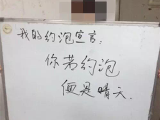 我的约泡宣言:
你若约泡
便是晴天.